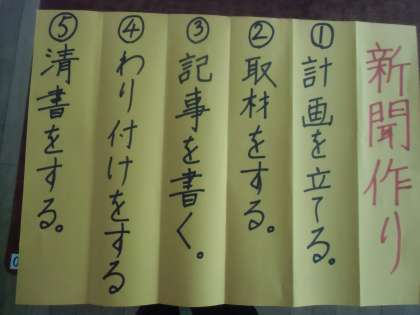 新聞作り
①計画を立てる。
②取材をする。
③記事を書く。
④わり付けをする
⑤清書をする。